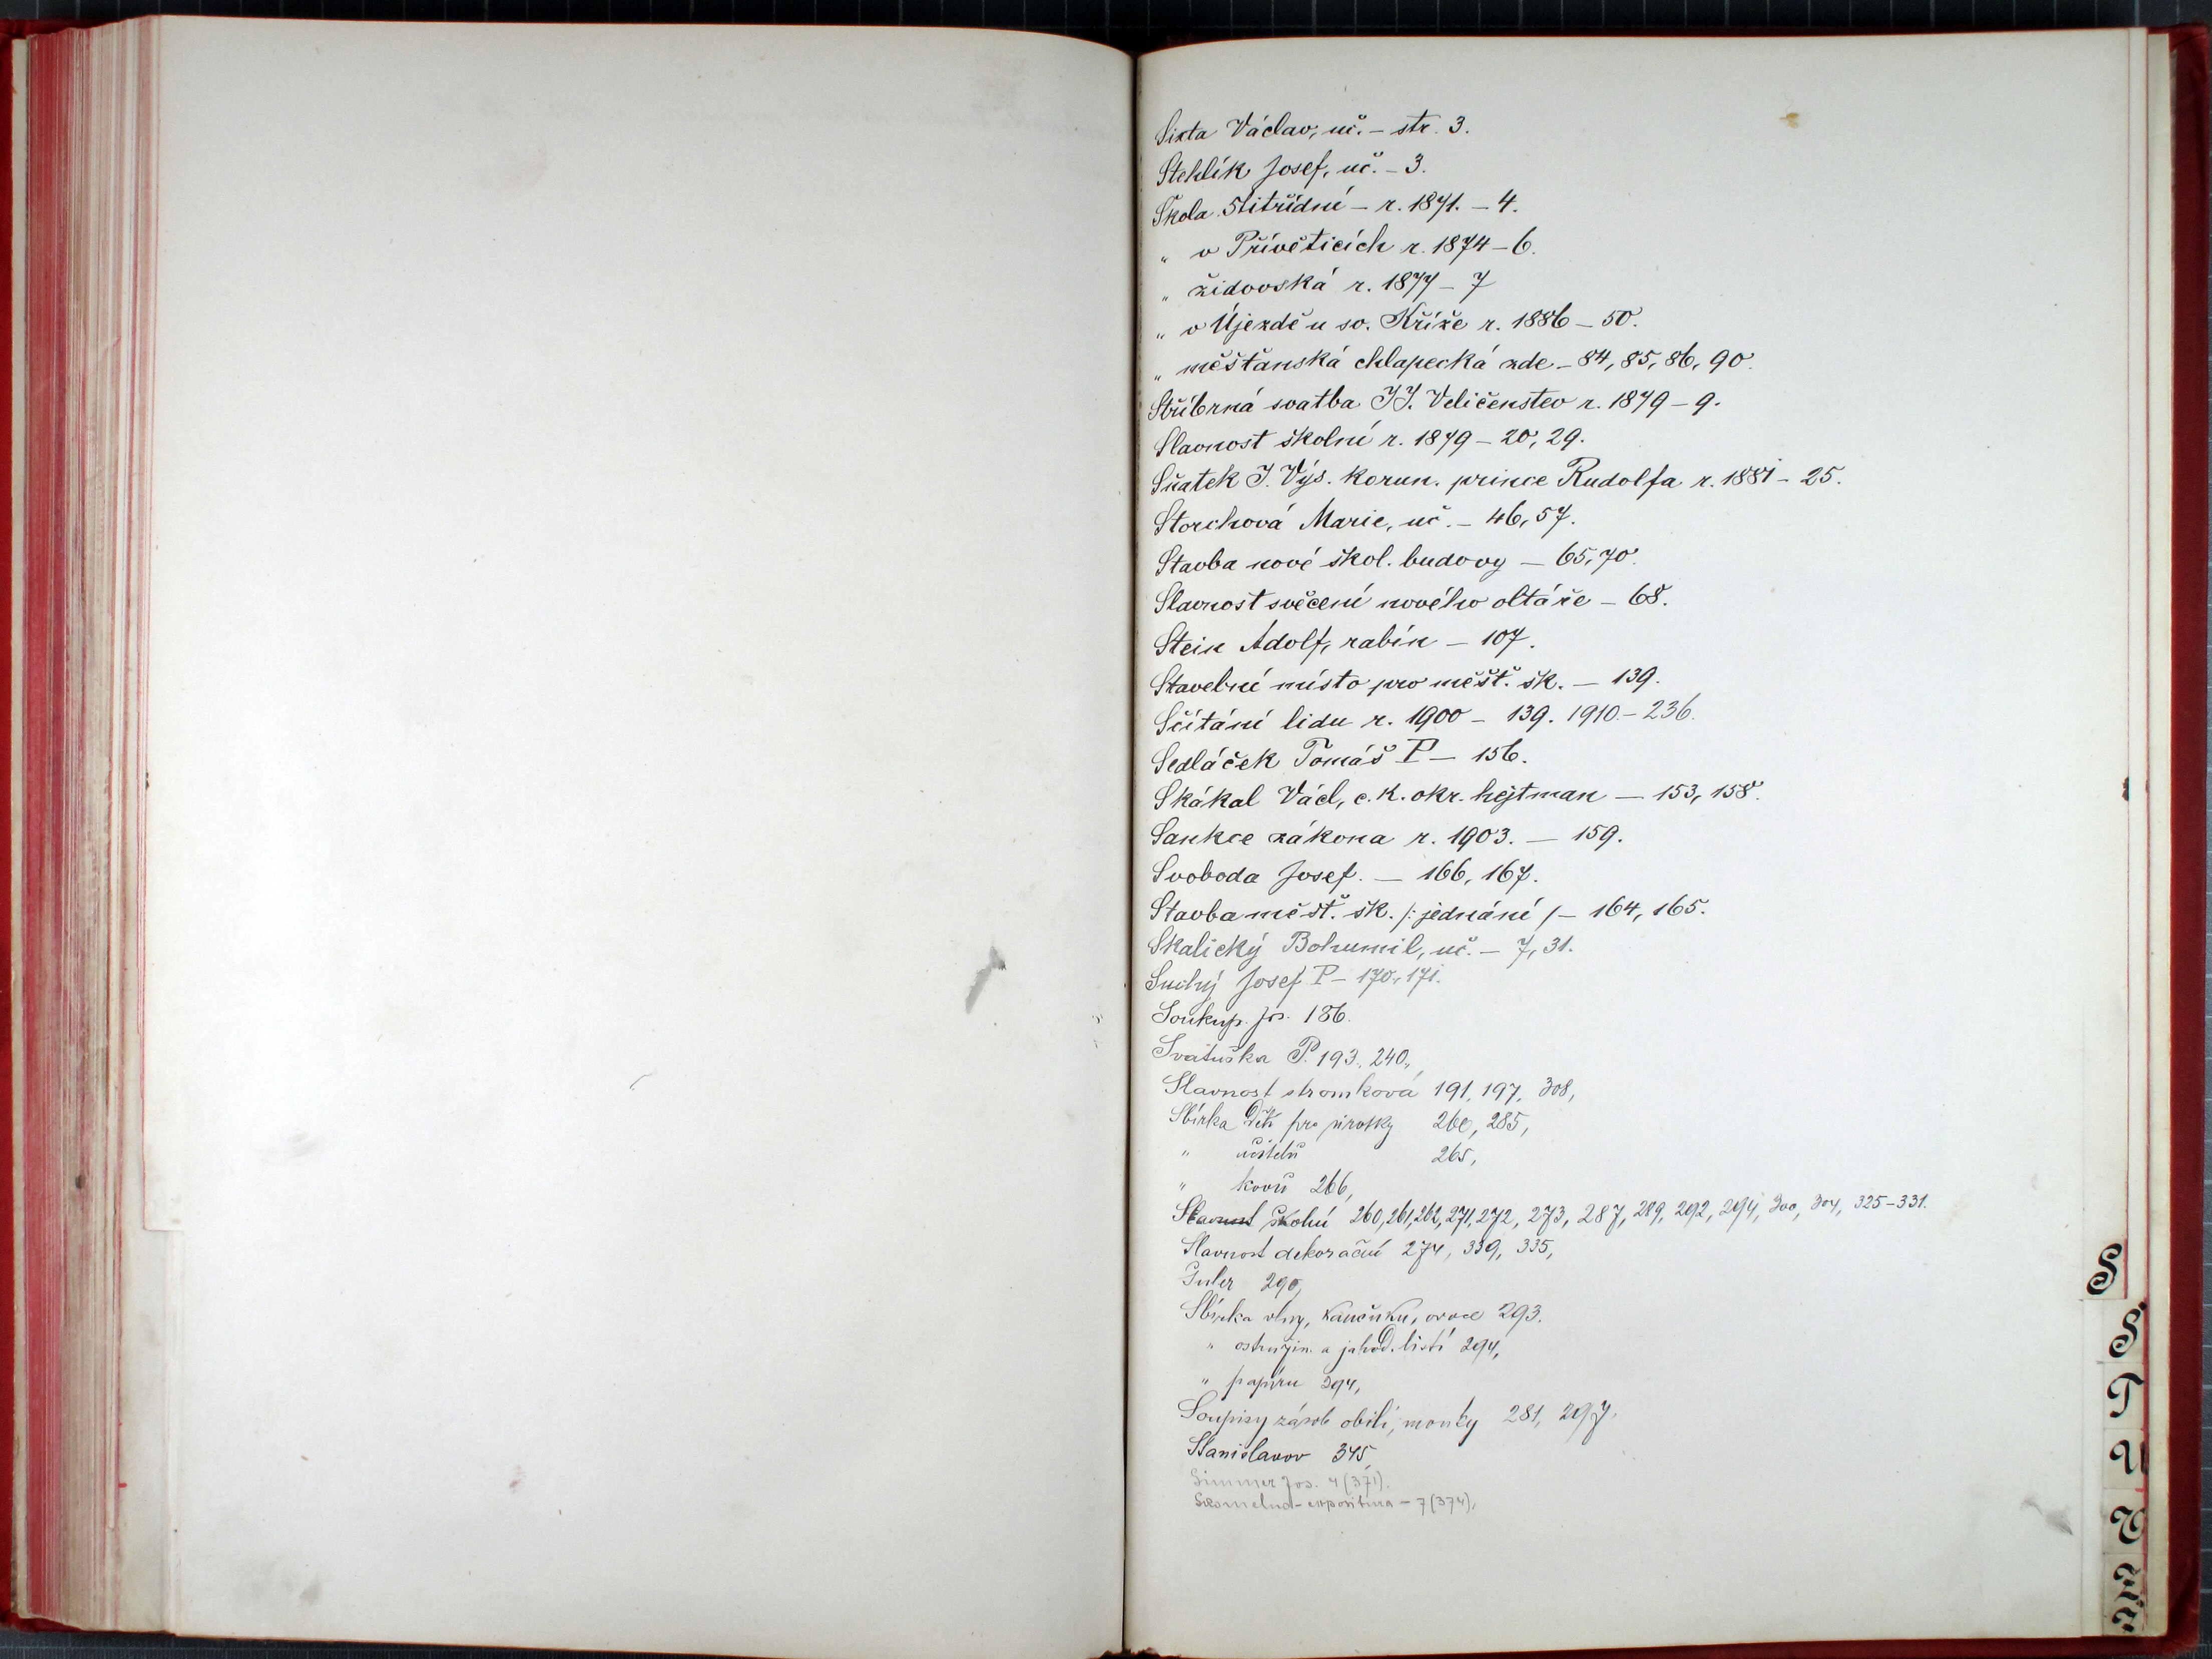 Sixta Václav, uč. – str. 3.
Stehlík Josef, uč. – 3.
Škola 5titřídní – r. 1871. – 4.
„ v Přívěticích r. 1874 – 6.
„ židovská r. 1877 – 7
„ v Újezdě u sv. Kříže r. 1886 – 50.
„ měšťanská chlapecká zde – 84, 85, 86, 90.
Stříbrná svatba JJ. Veličenstev r. 1879 – 9.
Slavnost školní r. 1879 – 20, 29.
Sňatek J. Výs. korun. prince Rudolfa r. 1881 – 25.
Storchová Marie, uč. – 46, 57.
Stavba nové škol. budovy – 65, 70.
Slavnost svěcení nového oltáře – 68.
Stein Adolf, rabín – 107.
Stavební místo pro měšť. šk. – 139.
Sčítání lidu r. 1900 – 139. 1910 – 236.
Sedláček Tomáš P – 156.
Skákal Václ, c. k. okr. hejtman – 153, 158.
Sankce zákona r. 1903. – 159.
Svoboda Josef. – 166, 167.
Stavba měšť. šk. /: jednání / – 164, 165.
Skalický Bohumil, uč. – 7, 31.
Suchý Josef P – 170, 171.
Soukup. Jos. 186.
Svatuška P. 193, 240,
Slavnost stromková 191, 197, 308,
Sbírka dětí pro sirotky 260, 285,
„ učitelů 265,
„ kovů 266,
Slavnost školní 260, 261, 262, 271, 272, 273, 287, 289, 292, 294, 300, 304, 325–331.
Slavnost dekorační 274, 339, 335,
290,
Sbírka vlny, kaučuku, ovoce 293.
„ ostružin. a jahod. listí 294,
„ papíru 294,
Soupisy zásob obilí, mouky 281, 297,
Stanislavov 345,
Simmer Jos. 4 (371).
expositura – 7 (374),
S
Š
T
U
V
Z